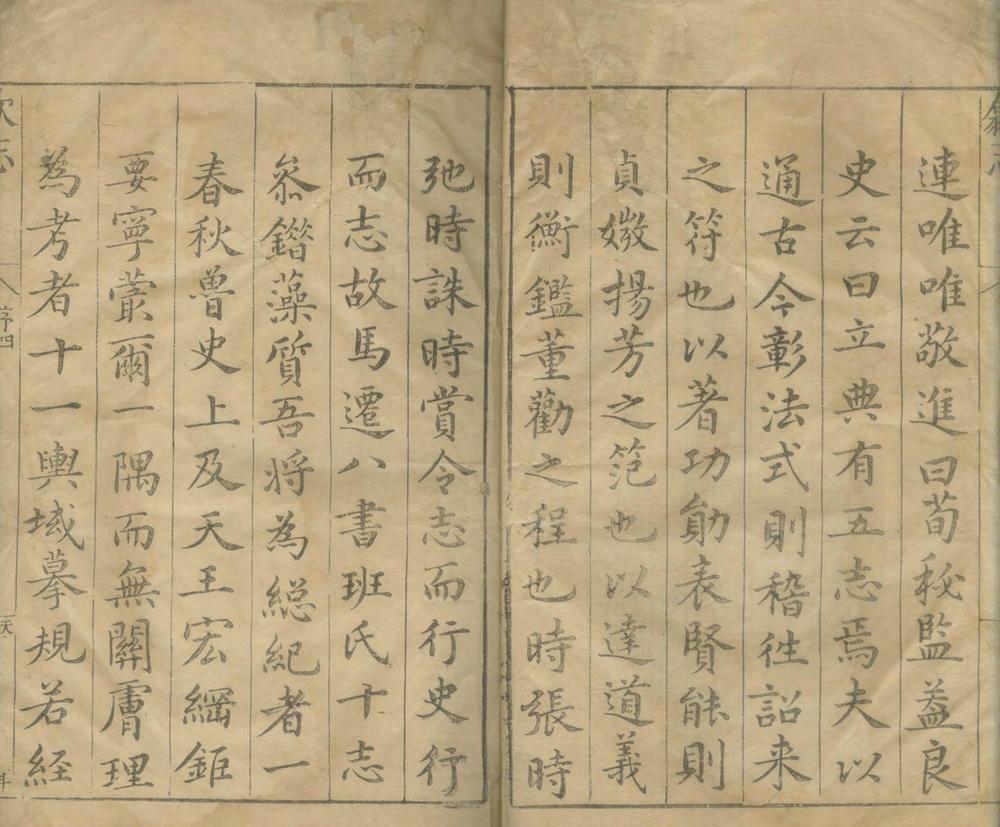 連唯唯敬進曰荀秘監益良
史云曰立典有五志焉夫以
通古今彰法式則稽徃詔来
之符也以著功勛表賢能則
貞媺揚芳之范也以達道義
則衡鑑董勸之程也時張時
弛時誅時賞令志而行史行
而志故馬遷八書班氏十志
叅鐕藻質吾将為縂紀者一
春秋魯史上及天王宏綱鉅
要寧藂爾一隅而無關膚理
為考者十一輿域摹規若経
序四